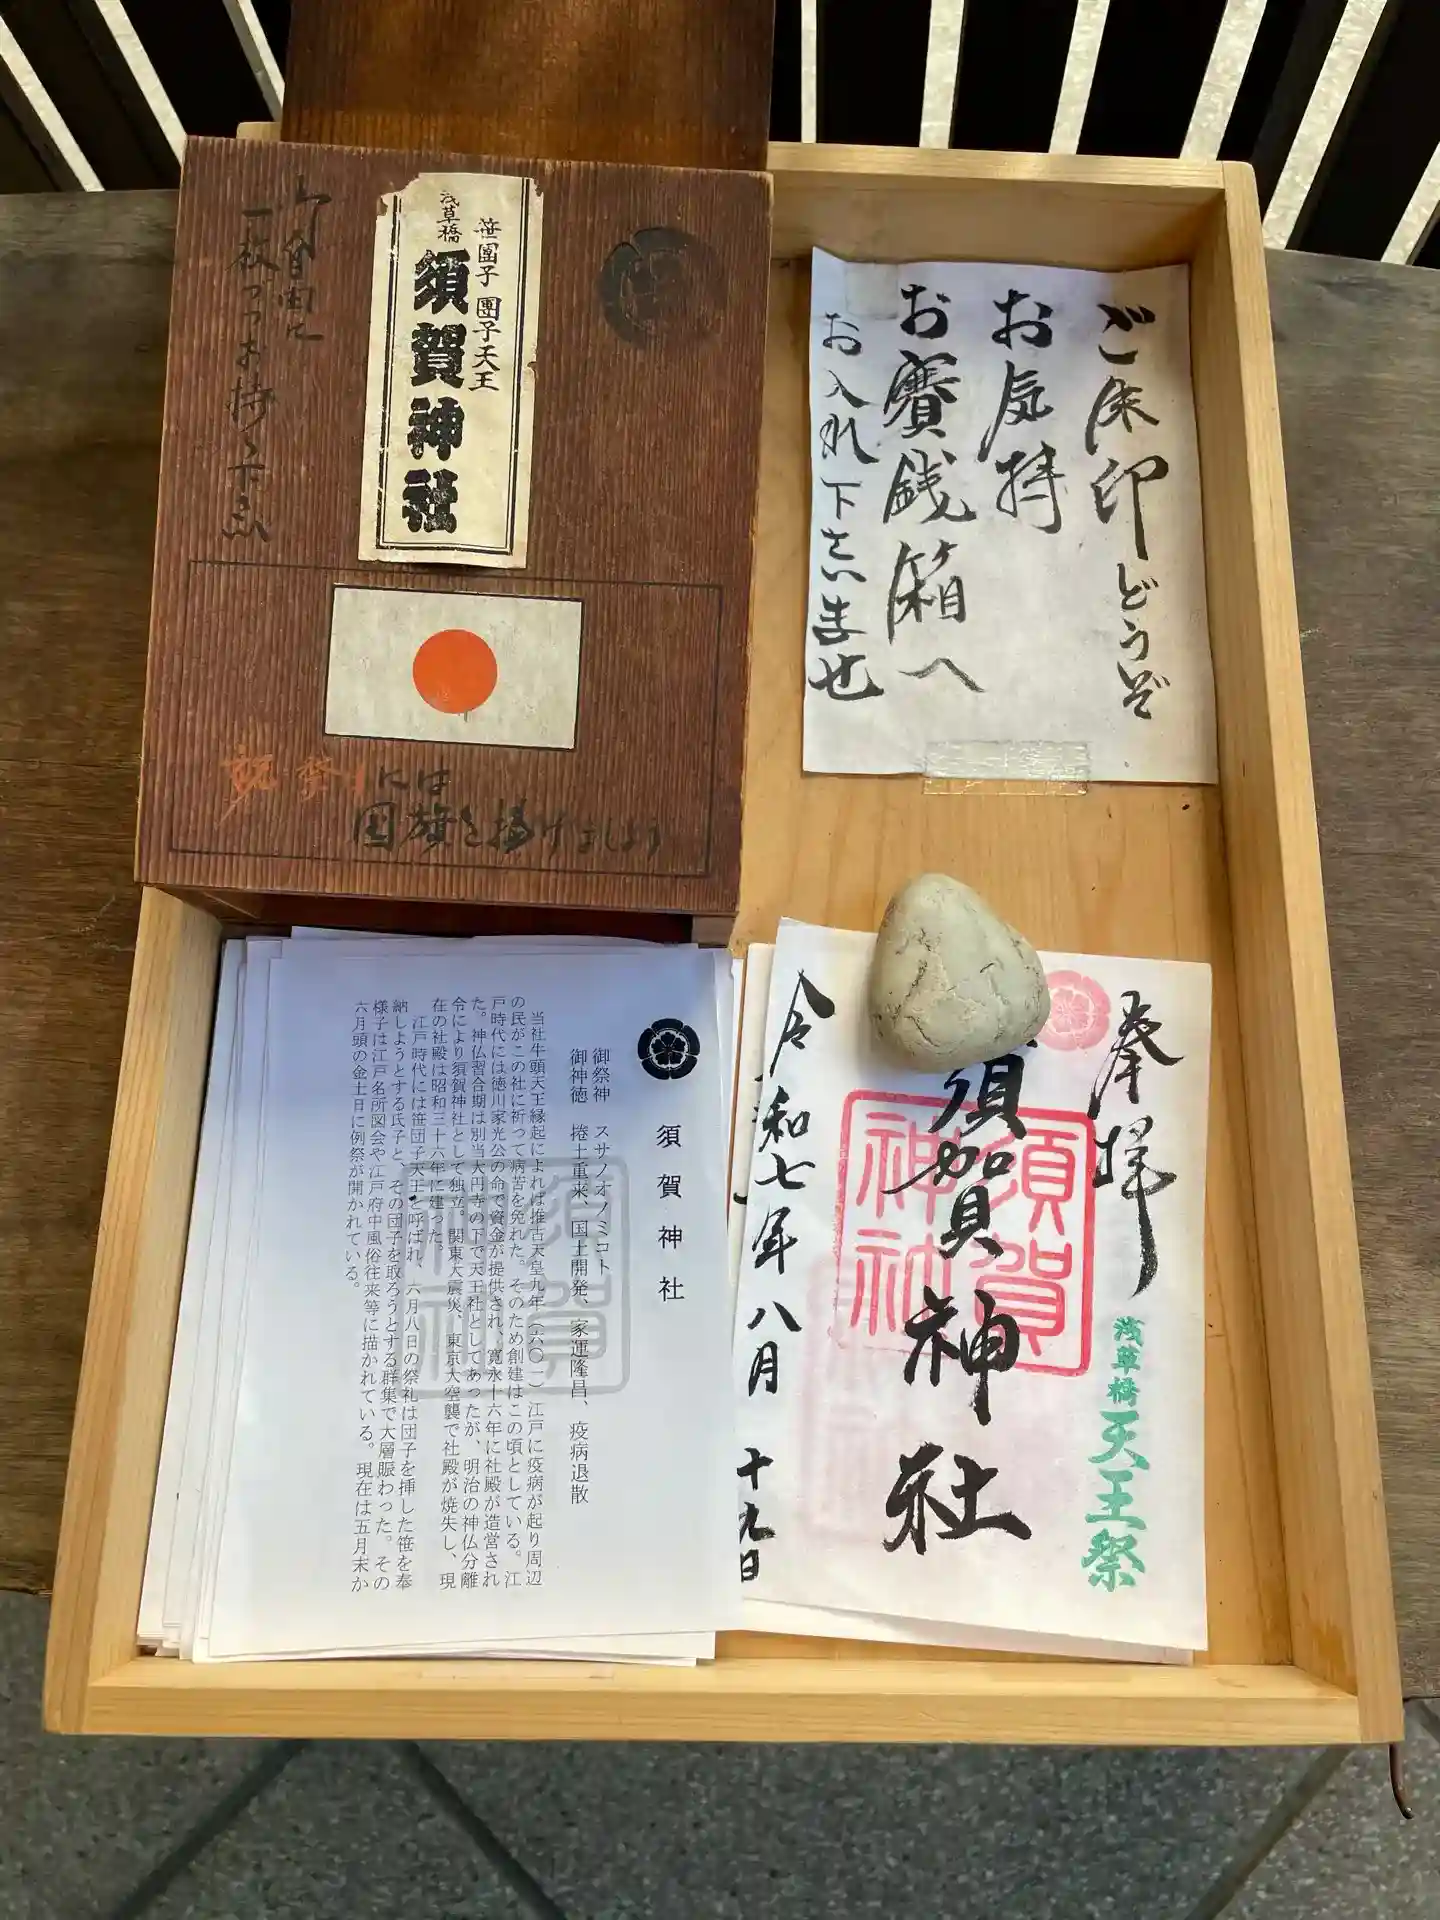 御自由に
一枚づつお持ち下さい
笹團子 團子天王
浅草橋
須賀神社
祝祭日には
国旗を掲げましょう
ご朱印どうぞ
お気持
お賽銭箱へ
お入れ下さいませ
須賀神社
御祭神 スサノオノミコト
御神徳 捲土重来、国土開発、家運隆昌、疫病退散
当社牛頭天王縁起によれば推古天皇九年(六〇一)江戸に疫病が起り周辺
の民がこの社に祈って病苦を免れた。そのため創建はこの頃としている。江
戸時代には徳川家光公の命で資金が提供され、寛永十六年に社殿が造営され
た。神仏習合期は別当大円寺の下で天王社としてあったが、明治の神仏分離
令により須賀神社として独立。関東大震災、東京大空襲で社殿が焼失し、現
在の社殿は昭和三十六年に建った。
江戸時代には笹団子天王と呼ばれ、六月八日の祭礼は団子を挿した笹を奉
納しようとする氏子と、その団子を取ろうとする群集で大層賑わった。その
様子は江戸名所図会や江戸府中風俗往来等に描かれている。現在は五月末か
六月頭の金土日に例祭が開かれている。
須賀神社
奉拝
浅草橋天王祭
須賀神社
須賀
神社
令和七年八月十九日